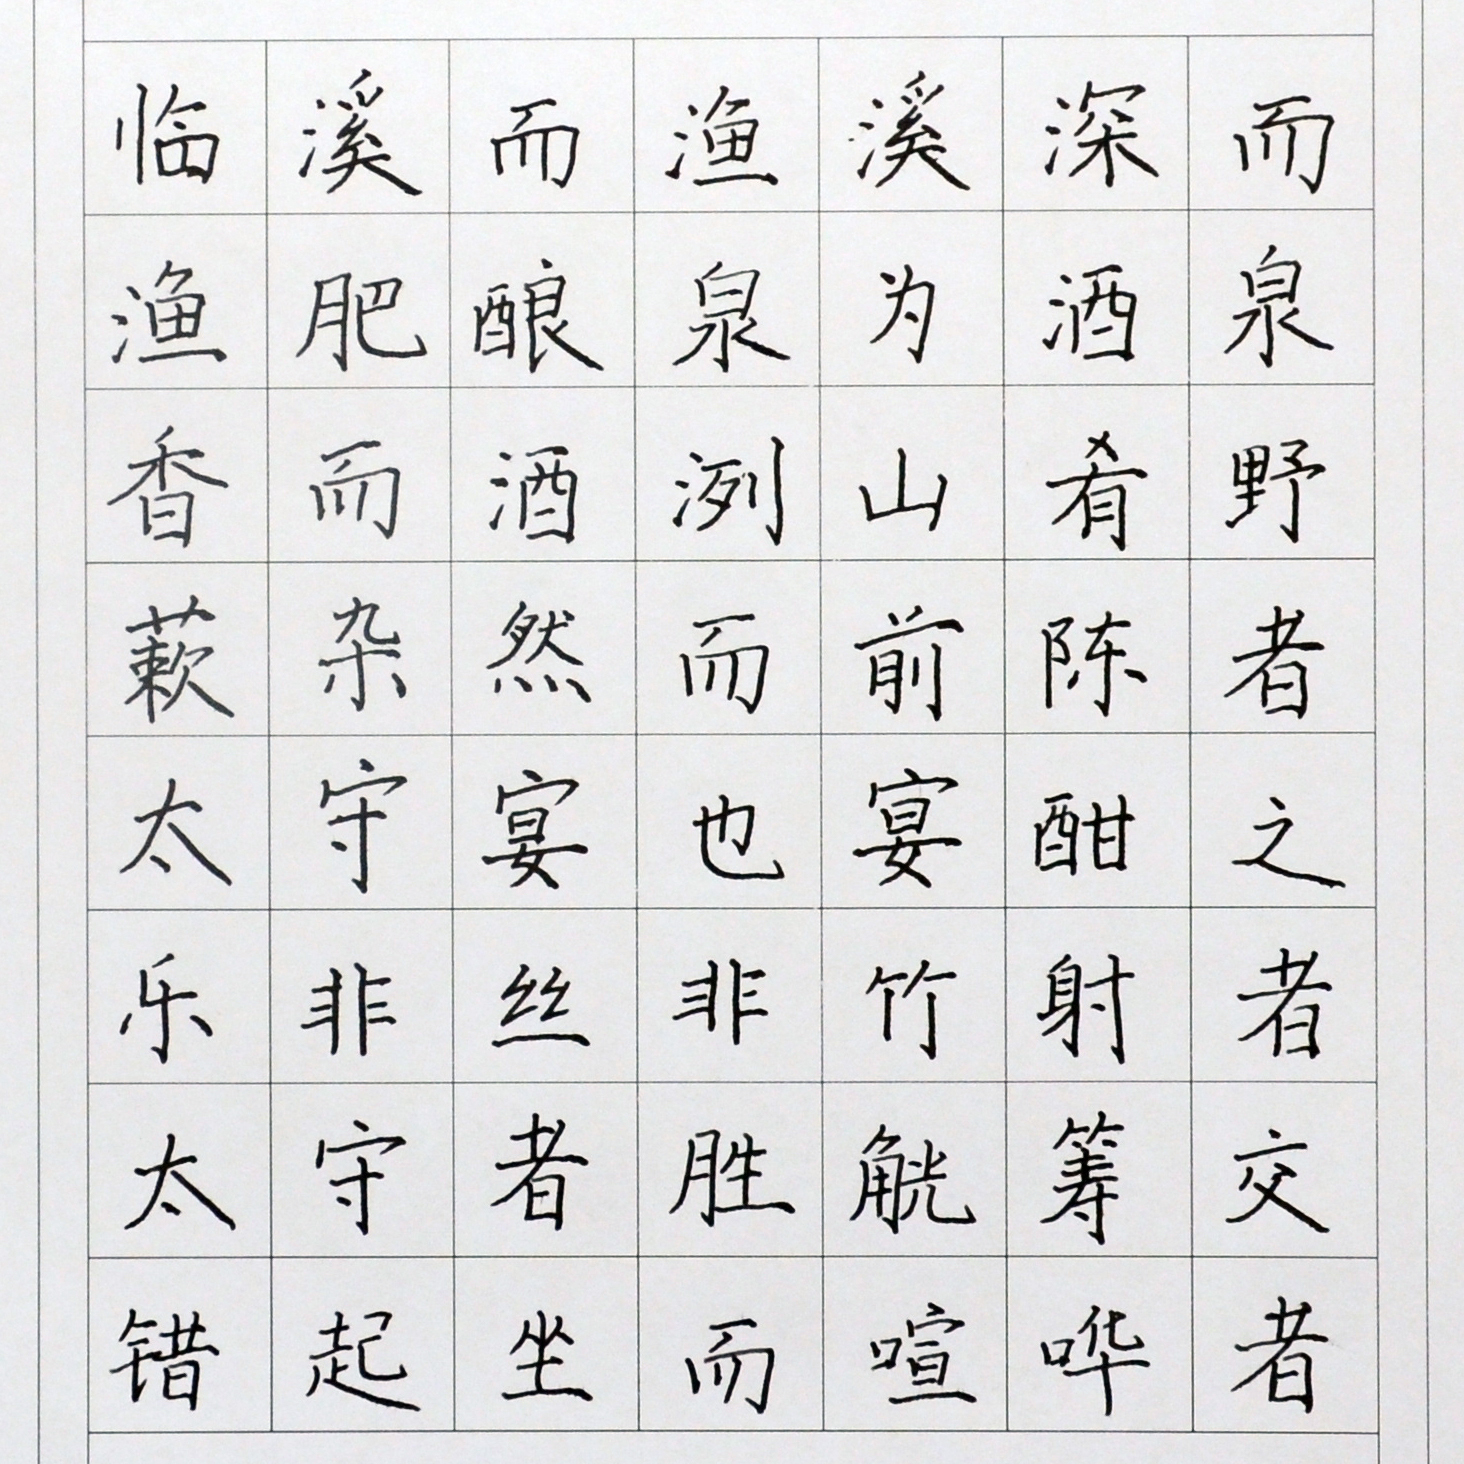 临溪而渔溪深而
渔肥酿泉为酒泉
香而酒洌山肴野
蔌杂然而前陈者
太守宴也宴酣之
乐非丝非竹射者
太守者胜觥筹交
错起坐而喧哗者